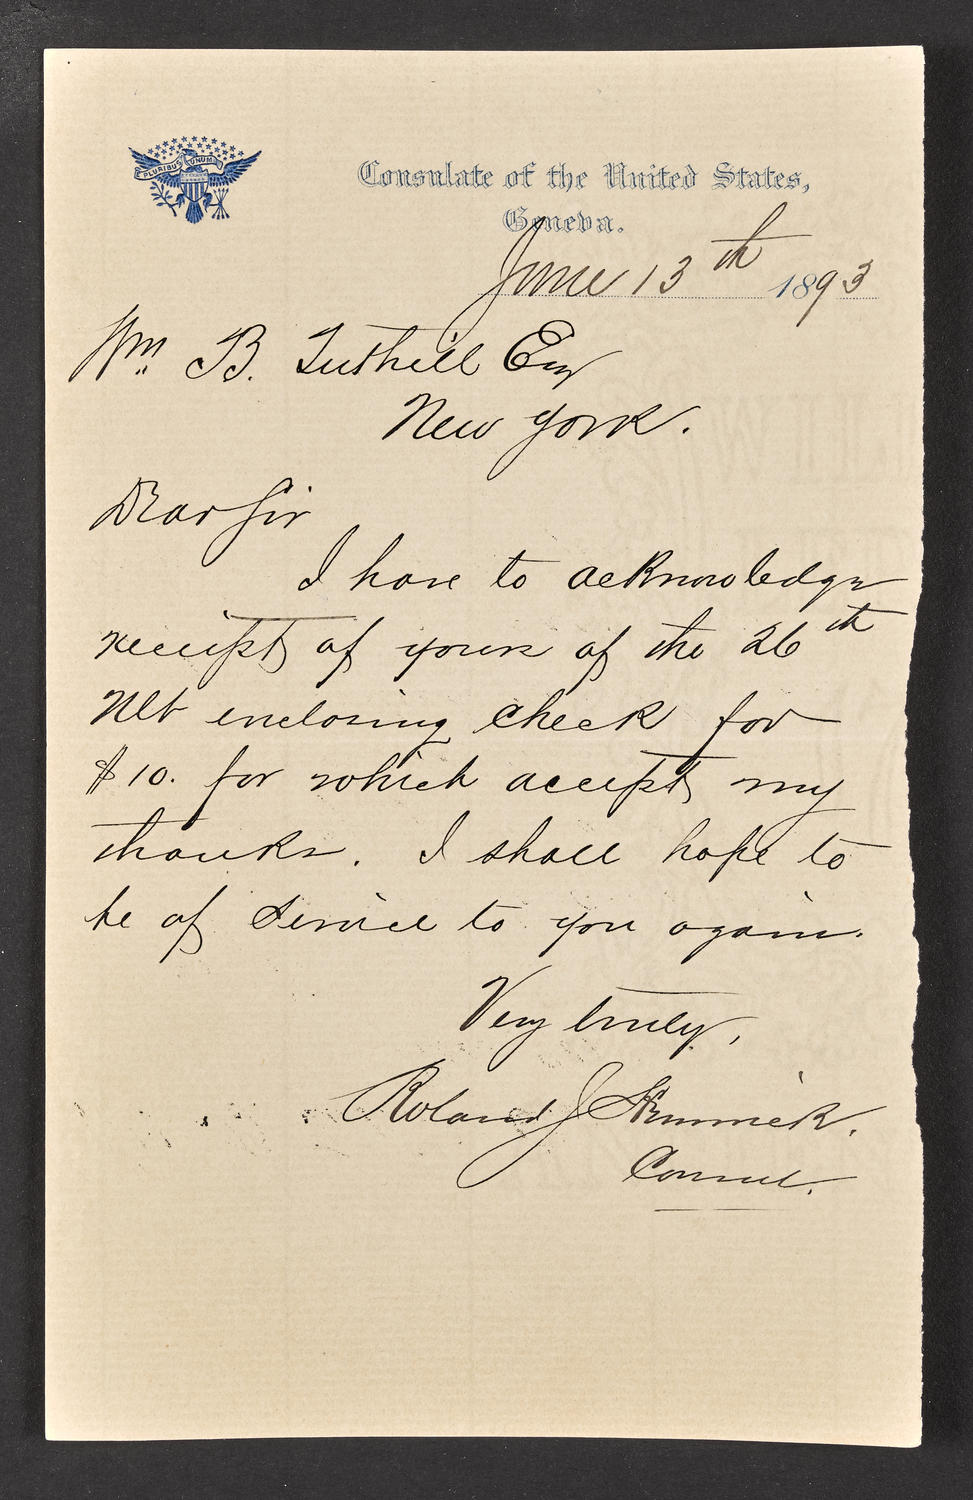 E PLURIBUS UNUM
Consulate of the United States,
Geneva.
June 13th 1893
Wm. B. Tuthill Esq
New York.
Dear Sir
I have to acknowledge
receipt of yours of the 26th
Ult enclosing check for
$10. for which accept my
thanks. I shall hope to
be of service to you again.
Very truly,
Roland J
Consul.